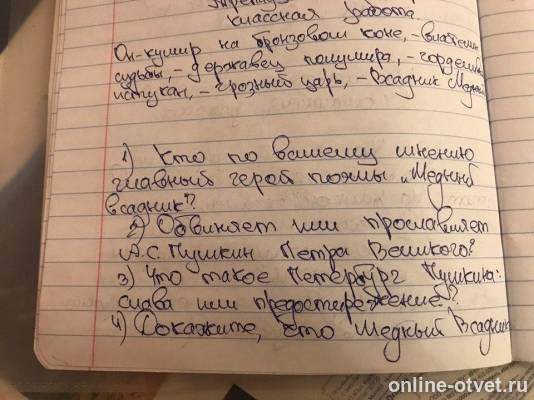 классная работа
Он-кумир на бронзовом коне, -властелин
судьбы, - державец полумира, - горделивый
истукан, - грозный царь, - Всадник Медный
1) Кто по вашему мнению
главный герой поэмы „Медный
всадник"?
2) Обвиняет или прославляет
А.С. Пушкин Петра Великого?
3) Что такое Петербург Пушкина:
слава или предостережение?
4) Докажите, что Медный Всадник
online-otvet.ru